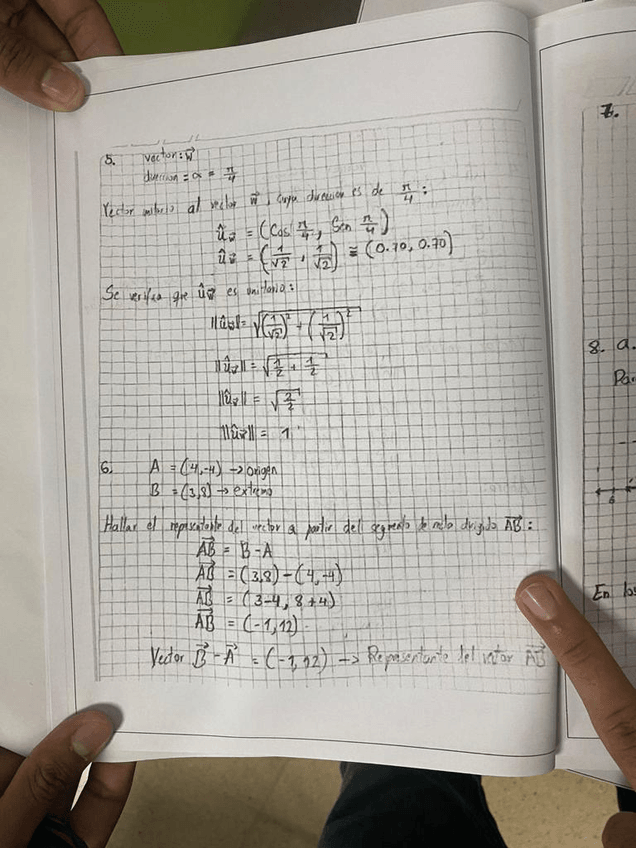 5. vector: w⃗
dirección = α = π/4
Vector unitario al vector w⃗, cuya dirección es de π/4:
û_w⃗ = (Cos π/4, Sen π/4)
û_w⃗ = (1/√2, 1/√2) ≅ (0.70, 0.70)
Se verifica que û_w⃗ es unitario:
||û_w⃗|| = √((1/√2)² + (1/√2)²)
||û_w⃗|| = √(1/2 + 1/2)
||û_w⃗|| = √(2/2)
||û_w⃗|| = 1
6. A = (4,-4) → origen
B = (3,8) → extremo
Hallar el representante del vector a partir del segmento de recta dirigido AB⃗:
AB⃗ = B - A
AB⃗ = (3,8) - (4,-4)
AB⃗ = (3-4, 8+4)
AB⃗ = (-1,12)
Vector B⃗ - A⃗ = (-1,12) → Representante del vector AB⃗
7.
8. a.
6
En los